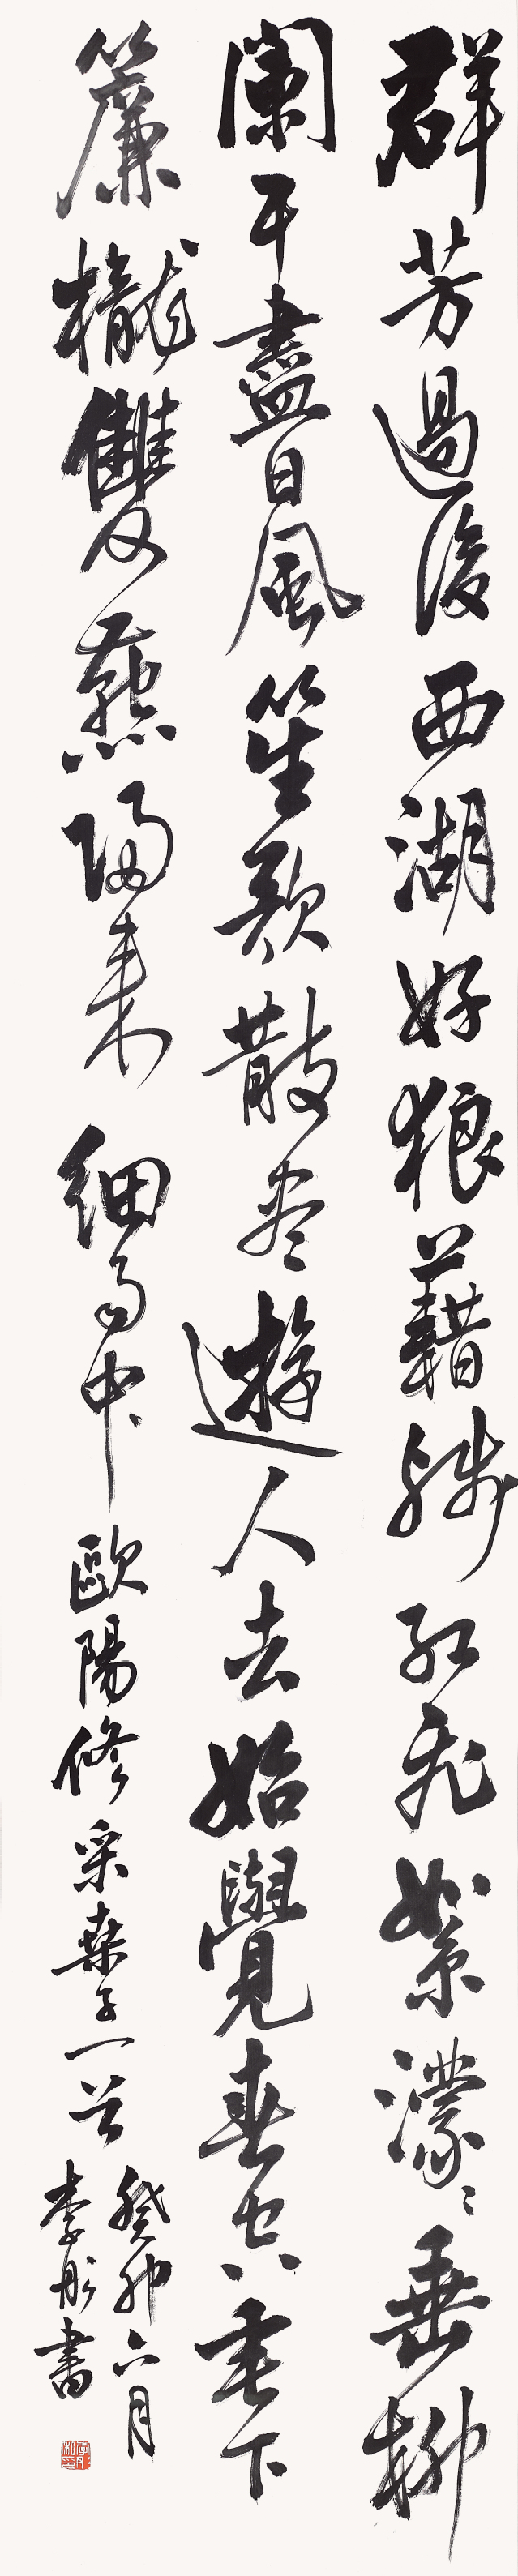 群芳過後西湖好狼藉殘紅飛絮濛々垂柳
闌干盡日風笙歌散盡遊人去始覺春空垂下
簾櫳雙燕歸來細雨中歐陽修采桑子一首
癸卯六月
李彤書